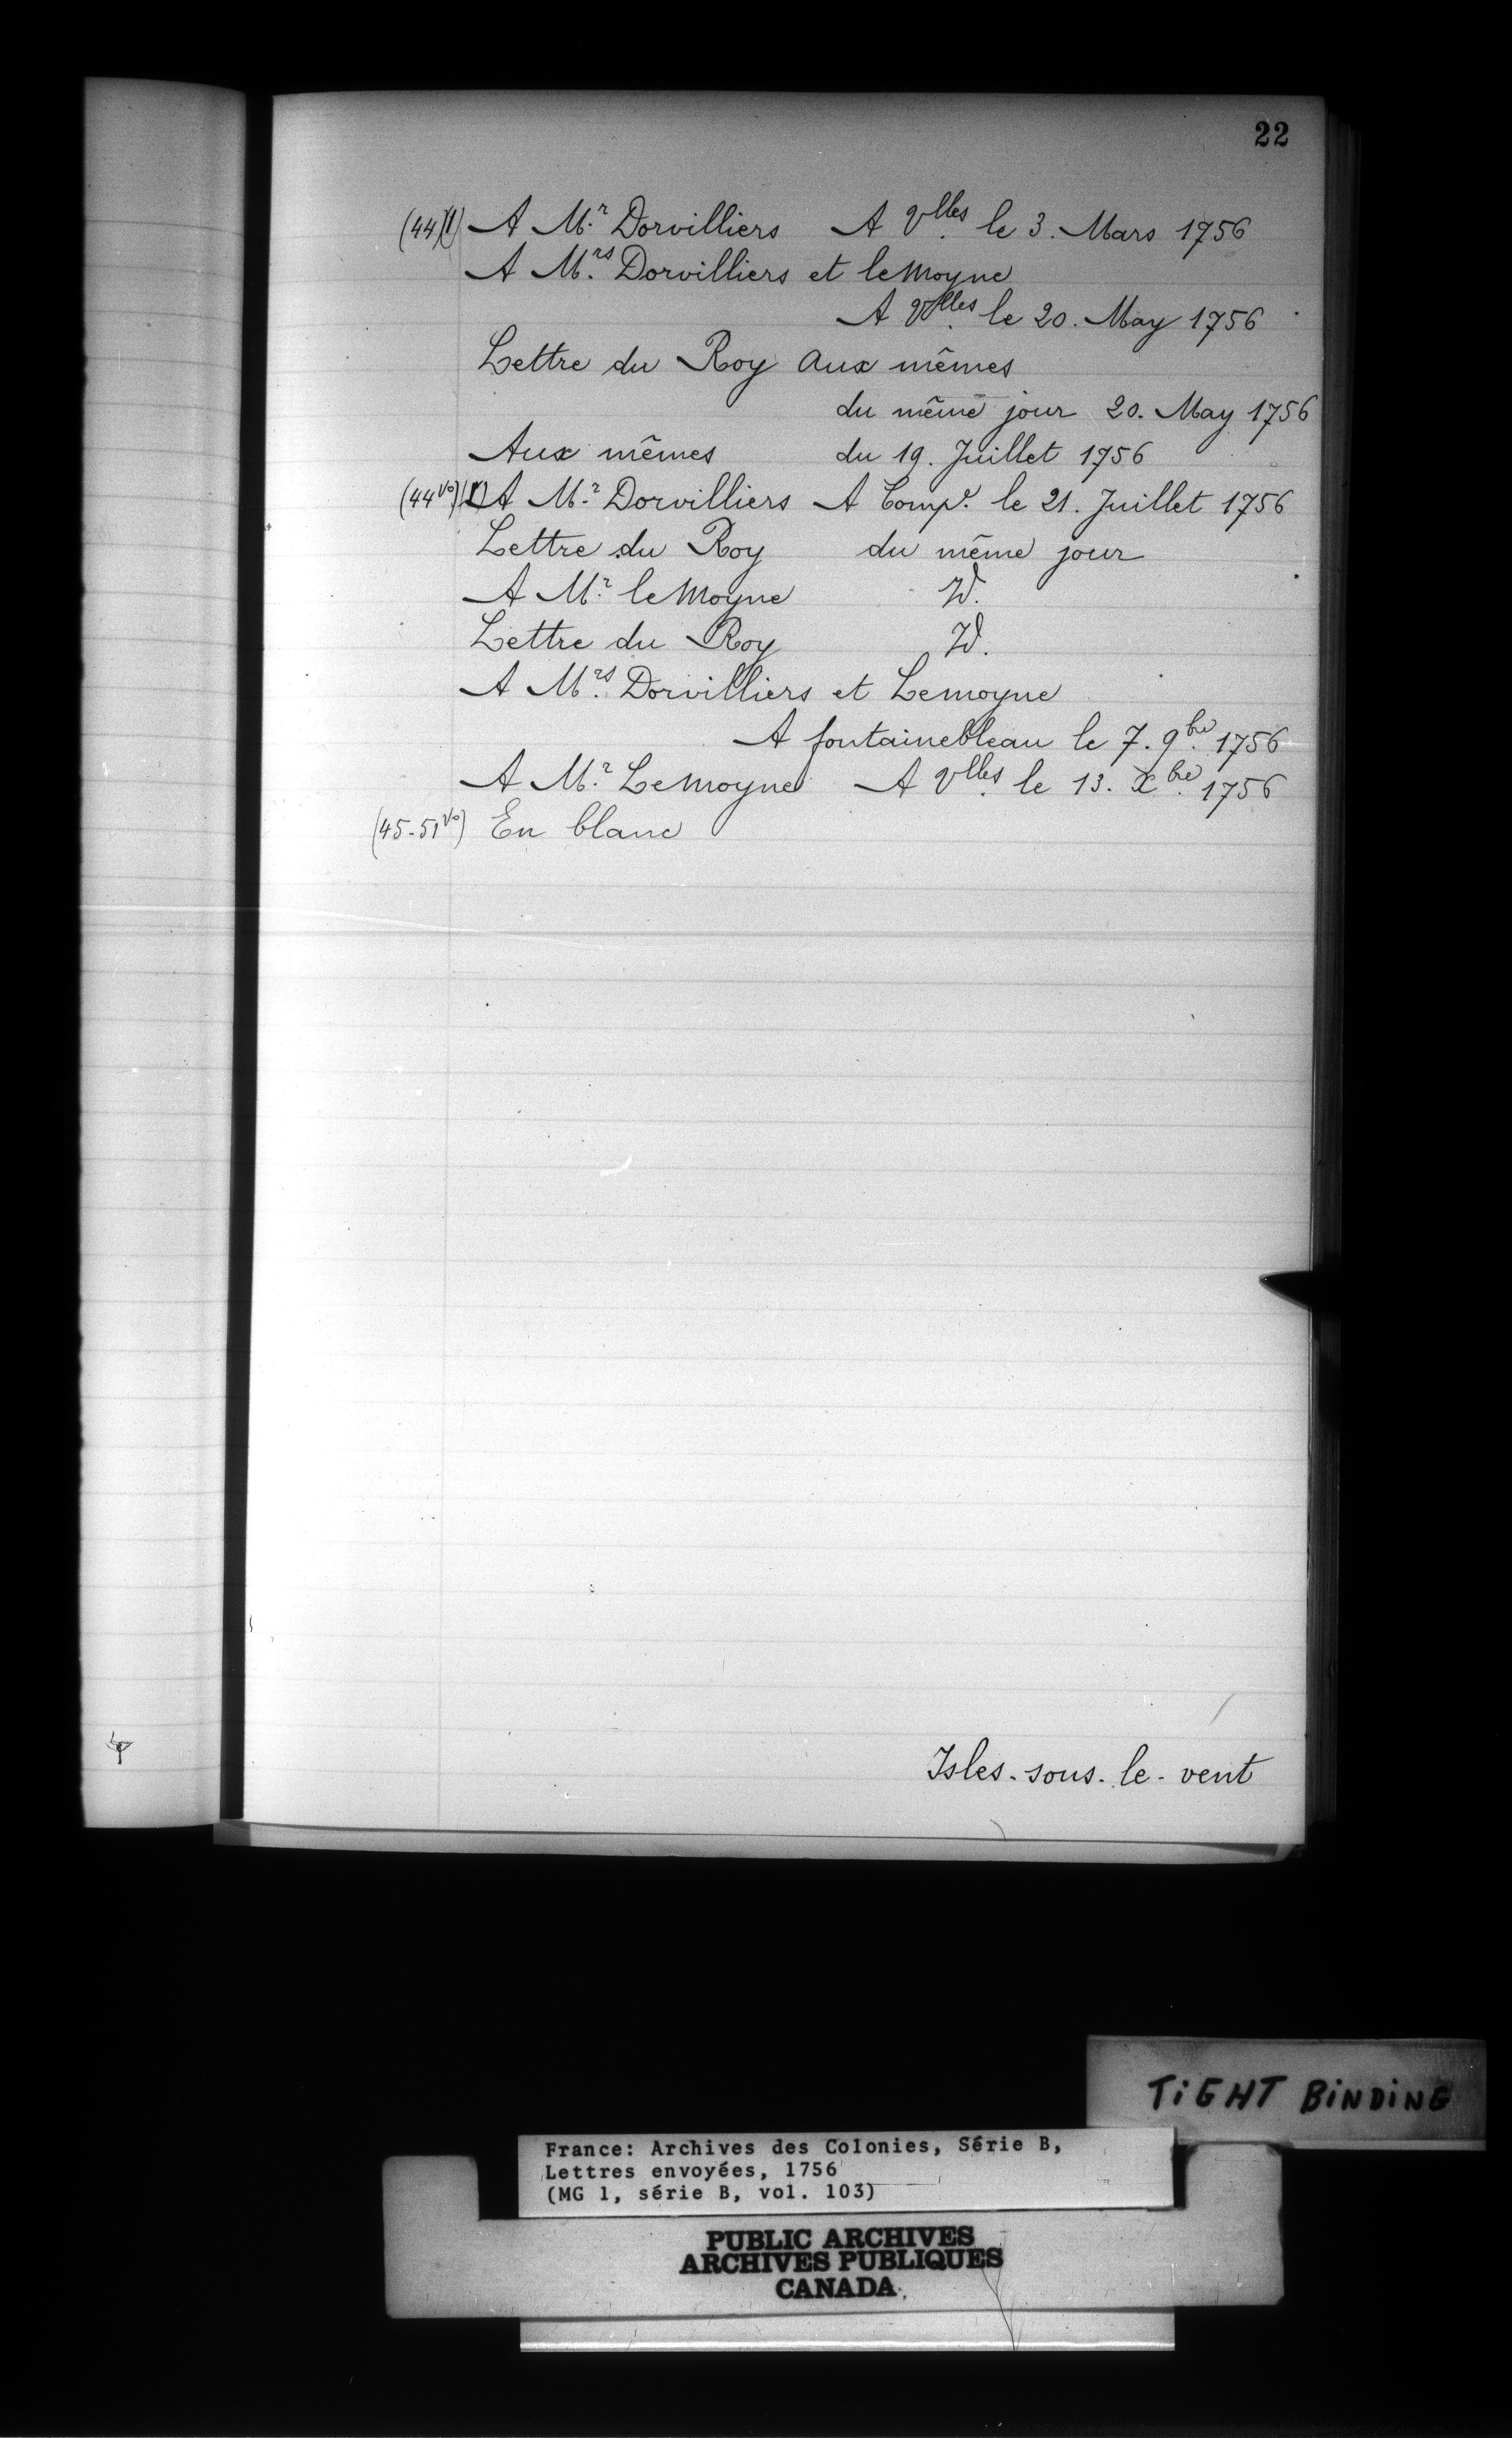 22
(44)(1) A Mr. Dorvilliers A Vlles. le 3. Mars 1756
A Mrs. Dorvilliers et leMoyne
A Vlles. le 20. May 1756
Lettre du Roy aux mêmes
du même jour 20. May 1756
Aux mêmes du 19. Juillet 1756
(44vo)(1) A Mr. Dorvilliers A Compe. le 21. Juillet 1756
Lettre du Roy du même jour
A Mr. leMoyne Id.
Lettre du Roy Id.
A Mrs. Dorvilliers et Lemoyne
A fontainebleau le 7. 9bre. 1756
A Mr. Lemoyne A Vlles. le 13. Xbre. 1756
(45-51vo) En blanc
Isles-sous-le-vent
TiGHT BiNDiNG
France: Archives des Colonies, Série B,
Lettres envoyées, 1756
(MG 1, série B, vol. 103)
PUBLIC ARCHIVES
ARCHIVES PUBLIQUES
CANADA